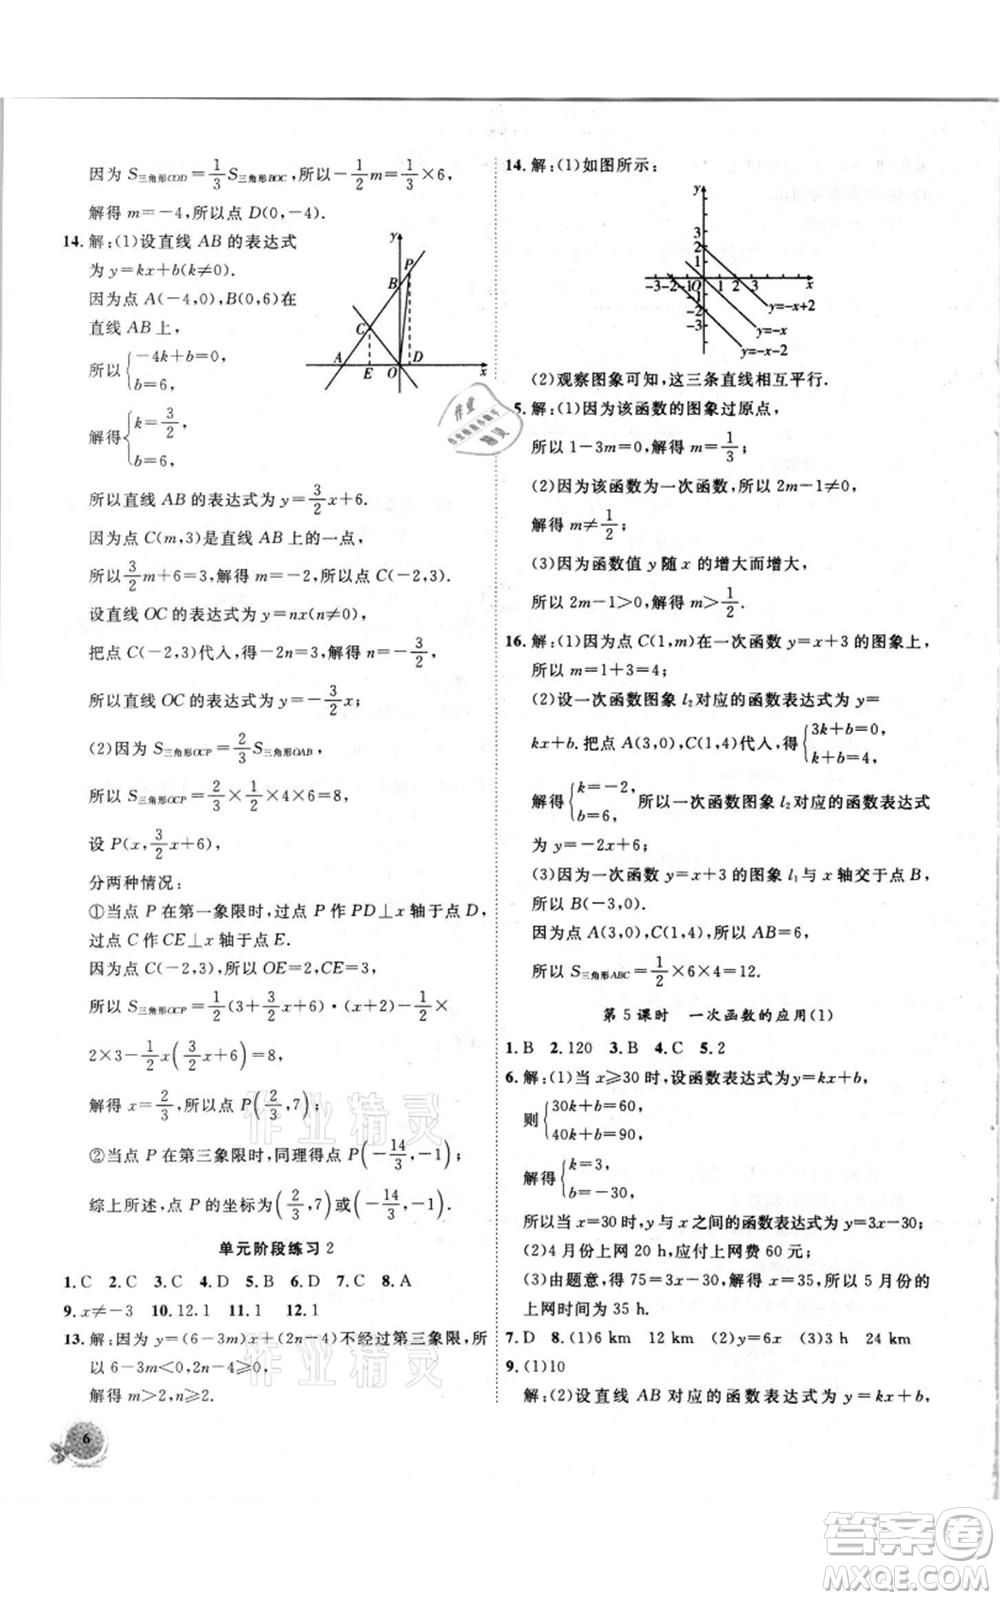 因为 S三角形COD=1/3 S三角形BOC,所以-1/2 m=1/3×6,
解得 m=-4,所以点 D(0,-4).
14.解:(1)设直线 AB 的表达式
为 y=kx+b(k≠0).
因为点 A(-4,0),B(0,6)在
直线 AB 上,
所以{-4k+b=0,
b=6,
解得{k=3/2,
b=6,
y
P
B
C
A
E
O
D
x
所以直线 AB 的表达式为 y=3/2 x+6.
因为点 C(m,3)是直线 AB 上的一点,
所以 3/2 m+6=3,解得 m=-2,所以点 C(-2,3).
设直线 OC 的表达式为 y=nx(n≠0),
把点 C(-2,3)代入,得-2n=3,解得 n=-3/2,
所以直线 OC 的表达式为 y=-3/2 x;
(2)因为 S三角形OCP=2/3 S三角形OAB,
所以 S三角形OCP=2/3×1/2×4×6=8,
设 P(x,3/2 x+6),
分两种情况:
①当点 P 在第一象限时,过点 P 作 PD⊥x 轴于点 D,
过点 C 作 CE⊥x 轴于点 E.
因为点 C(-2,3),所以 OE=2,CE=3,
所以 S三角形OCP=1/2(3+3/2 x+6)·(x+2)-1/2×
2×3-1/2 x(3/2 x+6)=8,
解得 x=2/3,所以点 P(2/3,7);
②当点 P 在第三象限时,同理得点 P(-14/3,-1);
综上所述,点 P 的坐标为(2/3,7)或(-14/3,-1).
单元阶段练习 2
1.C 2.C 3.C 4.D 5.B 6.D 7.C 8.A
9.x≠-3 10.12.1 11.1 12.1
13.解:因为 y=(6-3m)x+(2n-4)不经过第三象限,所
以 6-3m<0,2n-4≥0,
解得 m>2,n≥2.
6
14.解:(1)如图所示:
y
3
2
1
-3-2-1 O 1 2 3 x
-1
-2
-3
y=-x+2
y=-x
y=-x-2
(2)观察图象可知,这三条直线相互平行.
5.解:(1)因为该函数的图象过原点,
所以 1-3m=0,解得 m=1/3;
(2)因为该函数为一次函数,所以 2m-1≠0,
解得 m≠1/2;
(3)因为函数值 y 随 x 的增大而增大,
所以 2m-1>0,解得 m>1/2.
16.解:(1)因为点 C(1,m)在一次函数 y=x+3 的图象上,
所以 m=1+3=4;
(2)设一次函数图象 l₂对应的函数表达式为 y=
kx+b.把点 A(3,0),C(1,4)代入,得{3k+b=0,
k+b=4,
解得{k=-2,
b=6,
所以一次函数图象 l₂对应的函数表达式
为 y=-2x+6;
(3)因为一次函数 y=x+3 的图象 l₁与 x 轴交于点 B,
所以 B(-3,0).
因为点 A(3,0),C(1,4),所以 AB=6,
所以 S三角形ABC=1/2×6×4=12.
第 5 课时 一次函数的应用(1)
1.B 2.120 3.B 4.C 5.2
6.解:(1)当 x≥30 时,设函数表达式为 y=kx+b,
则{30k+b=60,
40k+b=90,
解得{k=3,
b=-30,
所以当 x≥30 时,y与 x 之间的函数表达式为 y=3x-30;
(2)4 月份上网 20 h,应付上网费 60 元;
(3)由题意,得 75=3x-30,解得 x=35,所以 5 月份的
上网时间为 35 h.
7.D 8.(1)6 km 12 km (2)y=6x (3)3 h 24 km
9.(1)10
解:(2)设直线 AB 对应的函数表达式为 y=kx+b,
作业精灵
作业精灵
作业
精灵
答案卷
MXQE.COM